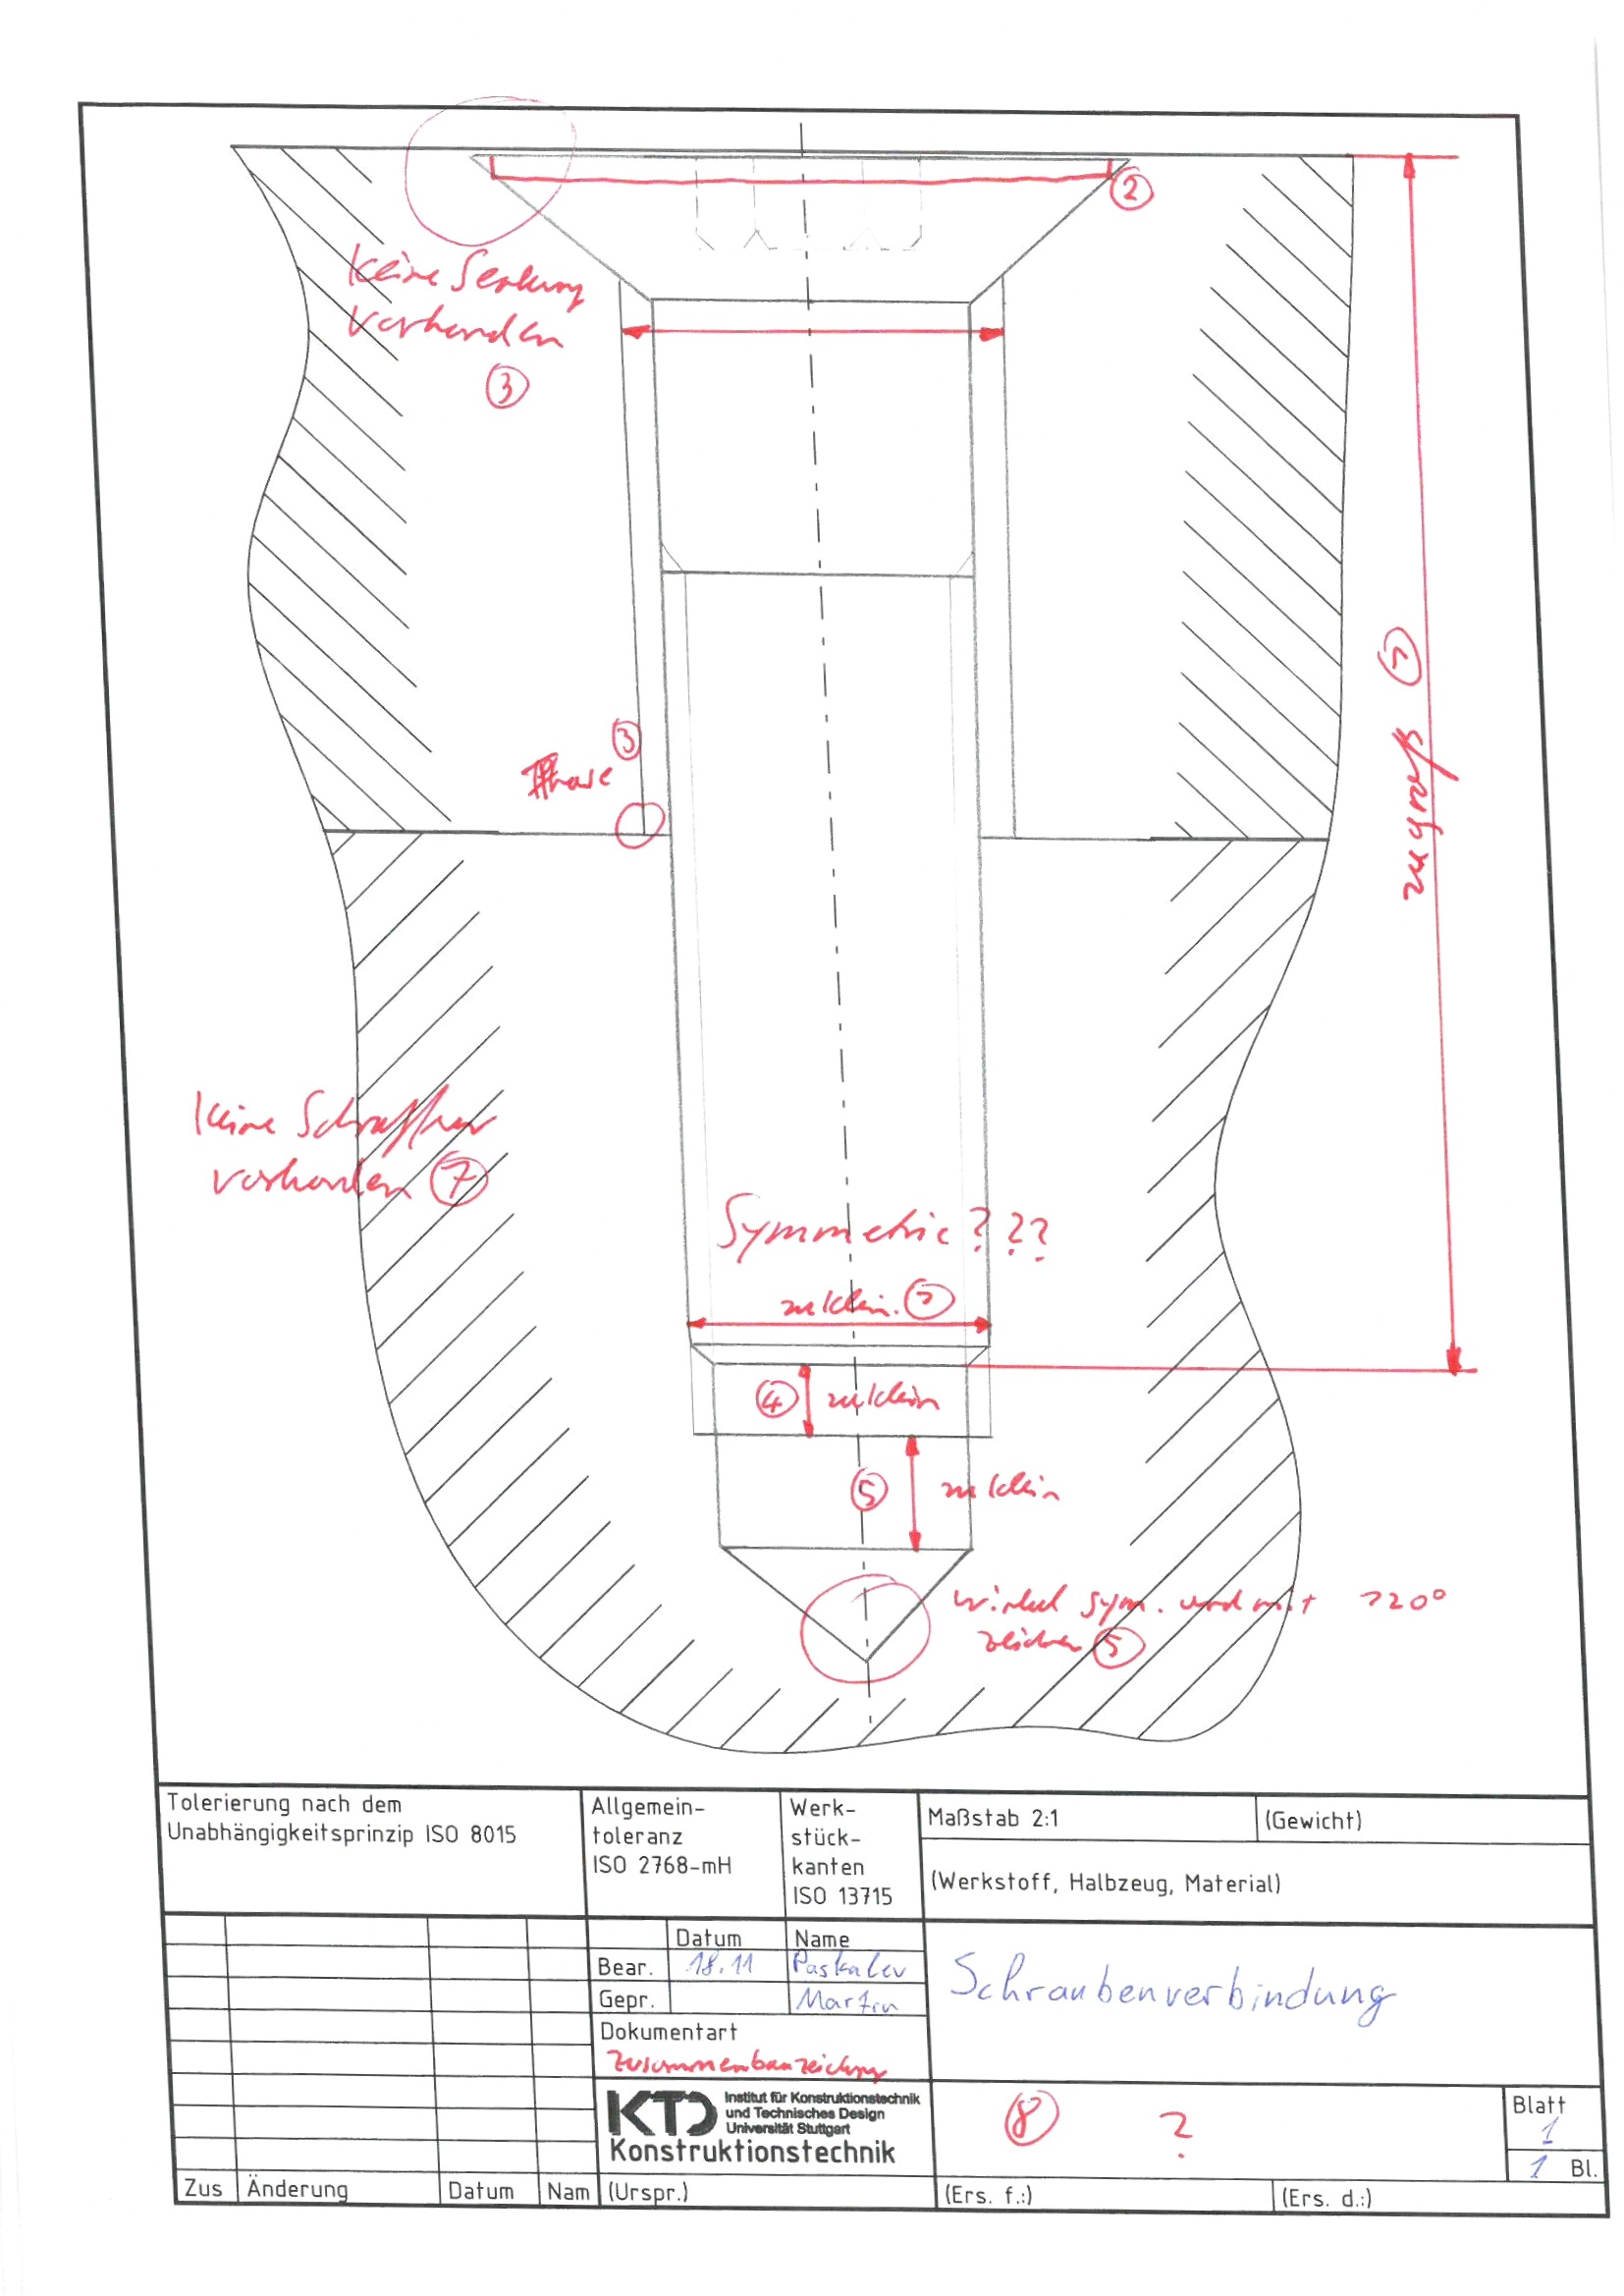 ②
keine Senkung
vorhanden
③
③
Phase
zu groß ②
keine Schraffur
vorhanden ⑦
Symmetrie???
zu klein. ②
④ zu klein
⑤ zu klein
Winkel sym. und mit 120°
zeichnen ⑤
Tolerierung nach dem
Unabhängigkeitsprinzip ISO 8015
Allgemein-
toleranz
ISO 2768-mH
Werk-
stück-
kanten
ISO 13715
Maßstab 2:1
(Gewicht)
(Werkstoff, Halbzeug, Material)
Datum Name
Bear. 18.11 Paskalev
Gepr. Martin
Dokumentart
Zusammenbauzeichnung
Schraubenverbindung
KTD Institut für Konstruktionstechnik
und Technisches Design
Universität Stuttgart
Konstruktionstechnik
⑧ ?
Blatt
1
1 Bl.
Zus Änderung Datum Nam (Urspr.) (Ers. f.:) (Ers. d.:)